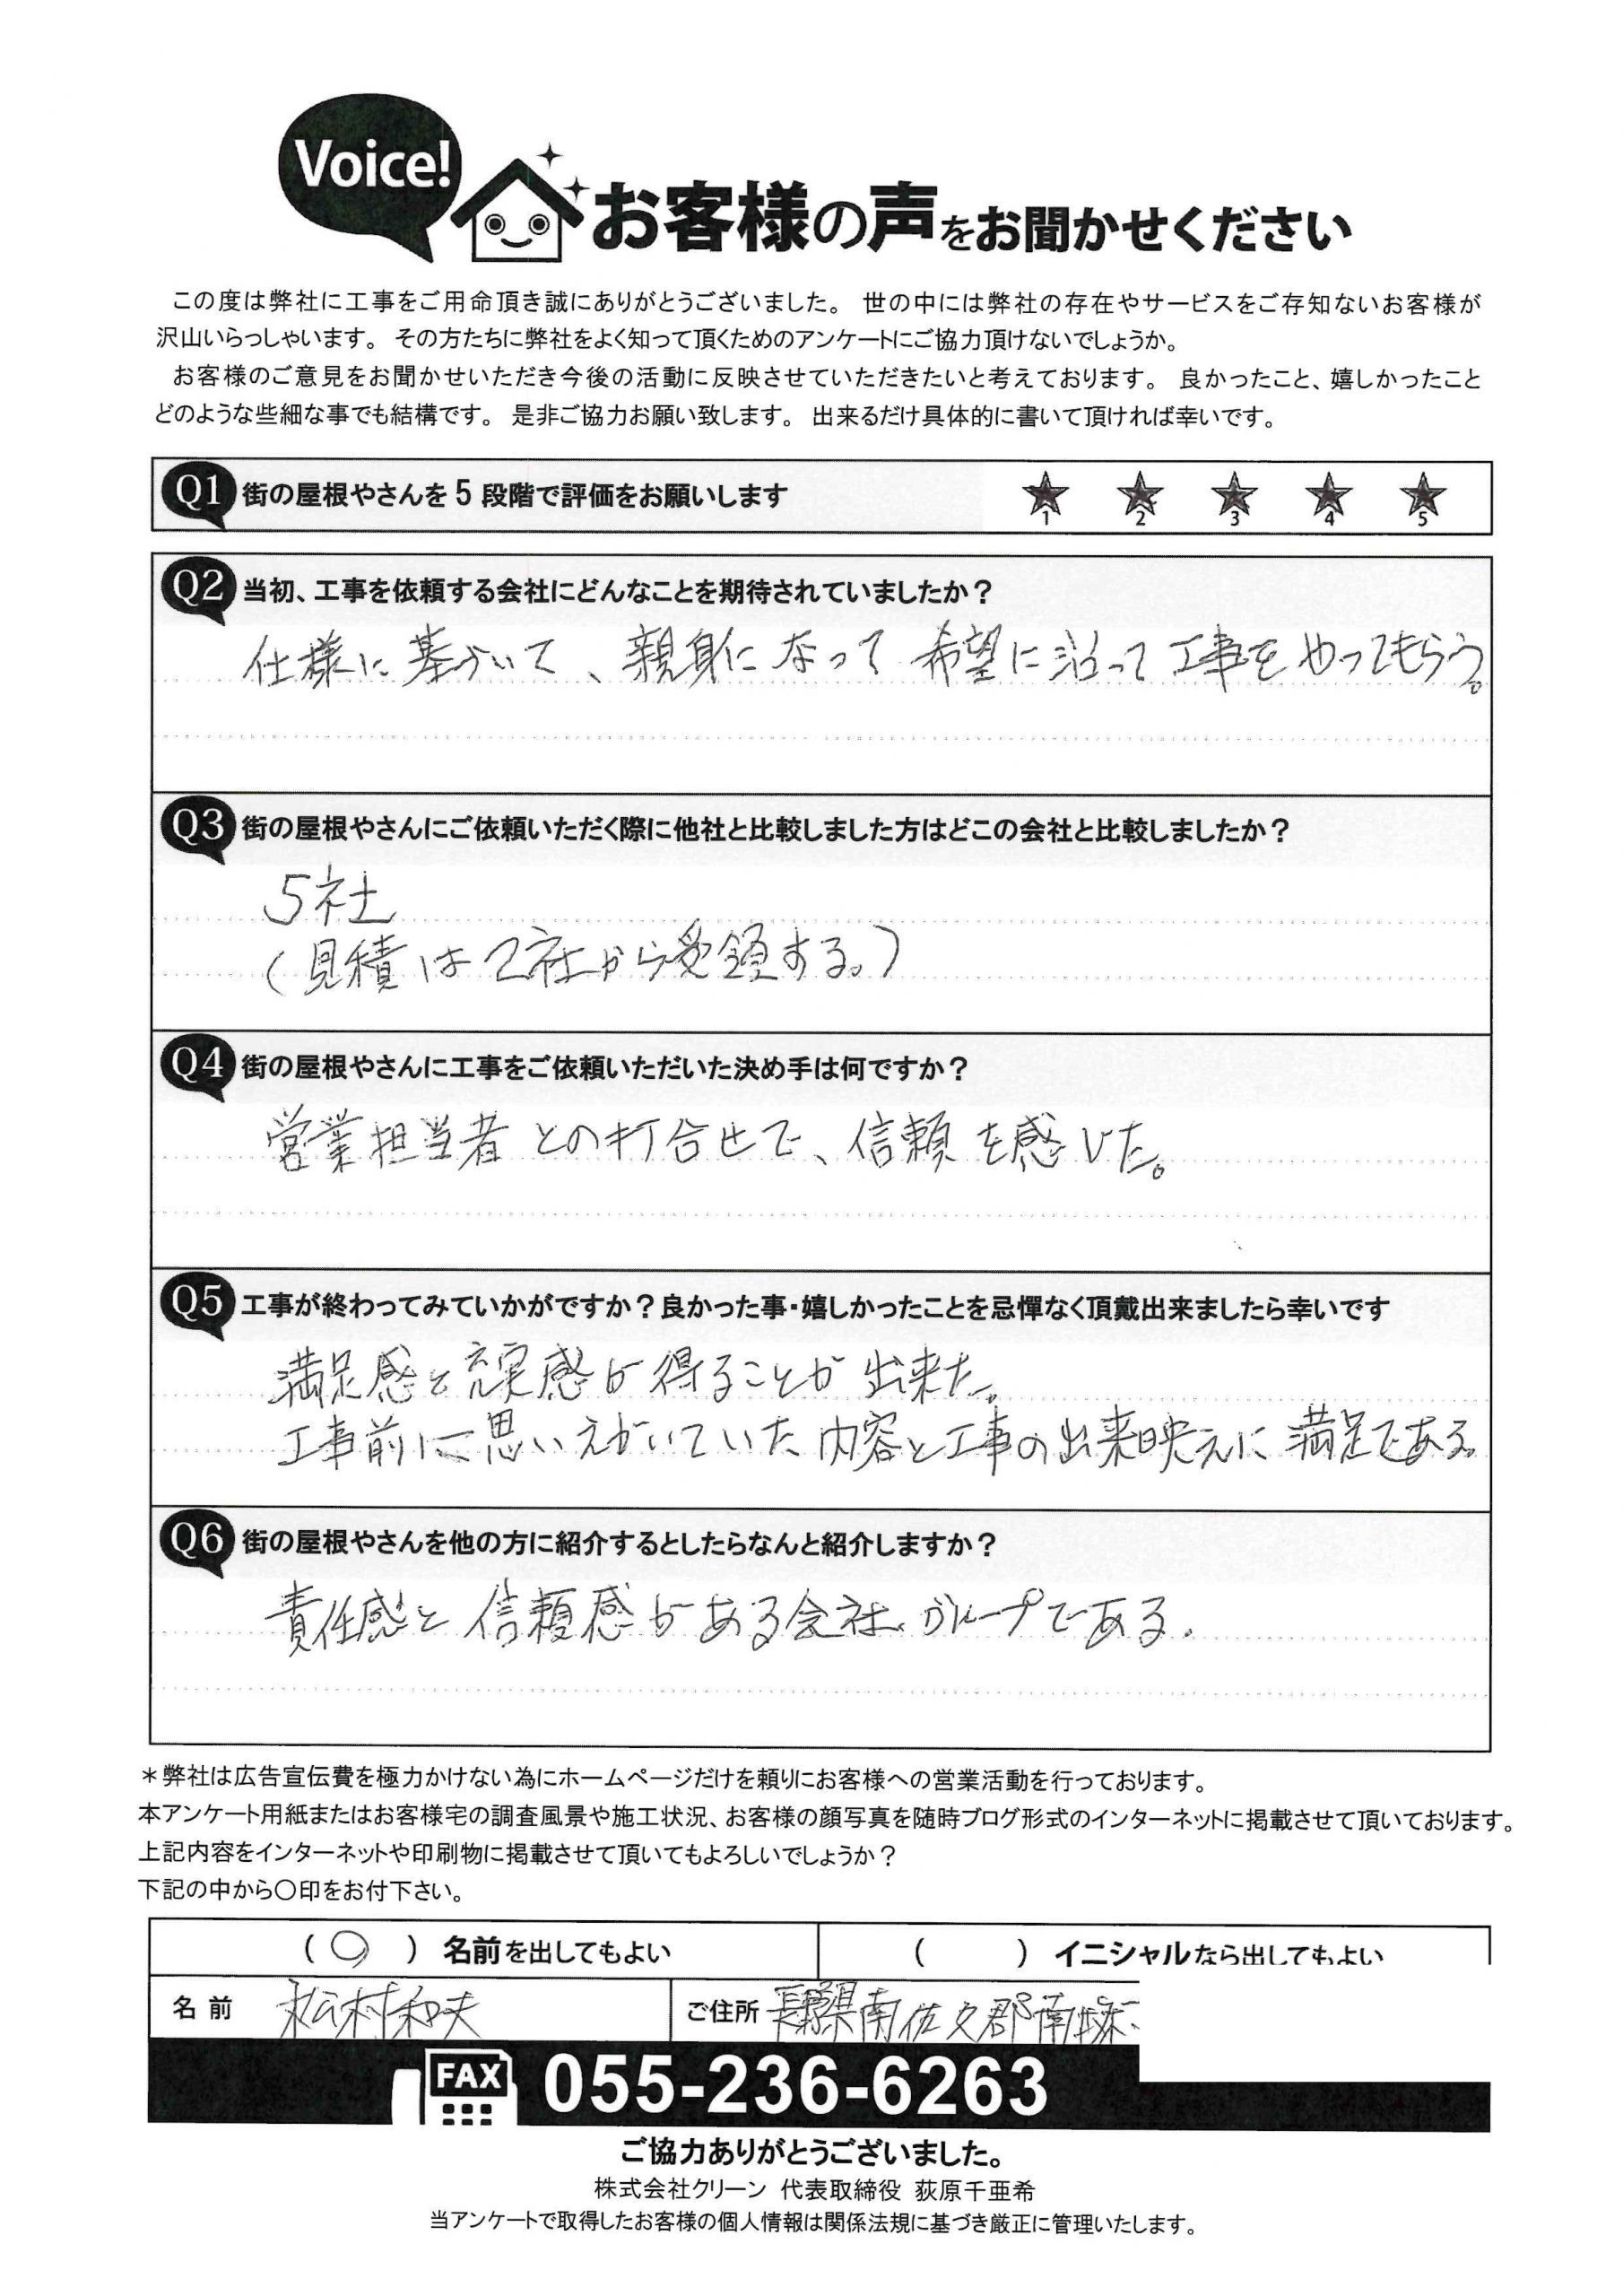 Voice!
お客様の声をお聞かせください
この度は弊社に工事をご用命頂き誠にありがとうございました。 世の中には弊社の存在やサービスをご存知ないお客様が
沢山いらっしゃいます。 その方たちに弊社をよく知って頂くためのアンケートにご協力頂けないでしょうか。
お客様のご意見をお聞かせいただき今後の活動に反映させていただきたいと考えております。 良かったこと、嬉しかったこと
どのような些細な事でも結構です。 是非ご協力お願い致します。 出来るだけ具体的に書いて頂ければ幸いです。
Q1 街の屋根やさんを5段階で評価をお願いします 1 2 3 4 5
Q2 当初、工事を依頼する会社にどんなことを期待されていましたか？
仕様に基づいて、親身になって希望に沿って工事をやってもらう。
Q3 街の屋根やさんにご依頼いただく際に他社と比較しました方はどこの会社と比較しましたか？
5社
(見積は2社から受領する。)
Q4 街の屋根やさんに工事をご依頼いただいた決め手は何ですか？
営業担当者との打合せで、信頼を感じた。
Q5 工事が終わってみていかがですか？良かった事・嬉しかったことを忌憚なく頂戴出来ましたら幸いです
満足感と充実感が得ることが出来た。
工事前に思いえがいていた内容と工事の出来映えに満足である。
Q6 街の屋根やさんを他の方に紹介するとしたらなんと紹介しますか？
責任感と信頼感がある会社、グループである.
＊弊社は広告宣伝費を極力かけない為にホームページだけを頼りにお客様への営業活動を行っております。
本アンケート用紙またはお客様宅の調査風景や施工状況、お客様の顔写真を随時ブログ形式のインターネットに掲載させて頂いております。
上記内容をインターネットや印刷物に掲載させて頂いてもよろしいでしょうか？
下記の中から○印をお付下さい。
(○) 名前を出してもよい ( ) イニシャルなら出してもよい
名前 松村和夫 ご住所 長野県南佐久郡南牧
FAX 055-236-6263
ご協力ありがとうございました。
株式会社クリーン 代表取締役 荻原千亜希
当アンケートで取得したお客様の個人情報は関係法規に基づき厳正に管理いたします。